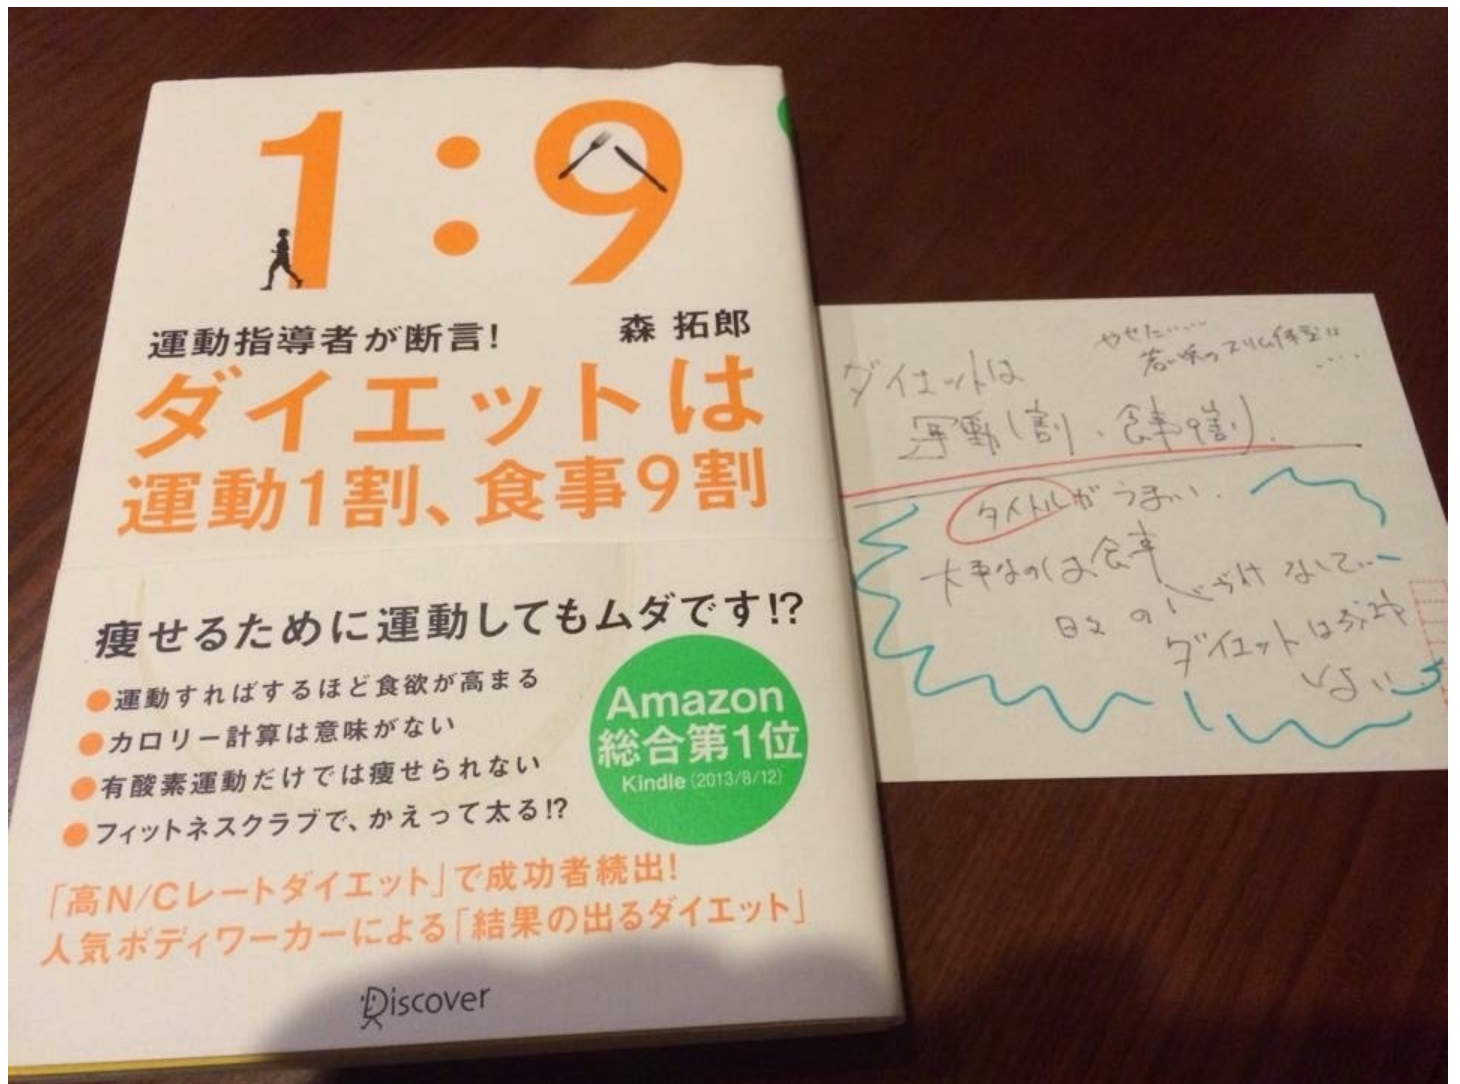 1:9
運動指導者が断言!
森 拓郎
ダイエットは
運動1割、食事9割
痩せるために運動してもムダです!?
●運動すればするほど食欲が高まる
●カロリー計算は意味がない
●有酸素運動だけでは痩せられない
●フィットネスクラブで、かえって太る!?
Amazon
総合第1位
Kindle(2013/8/12)
「高N/Cレートダイエット」で成功者続出!
人気ボディワーカーによる「結果の出るダイエット」
Discover
やせたい……
スリム体型は
ダイエットは
運動1割、食事9割.
タイトルがうまい.
大事なのは食事
日々の心づけなしに
ダイエットは